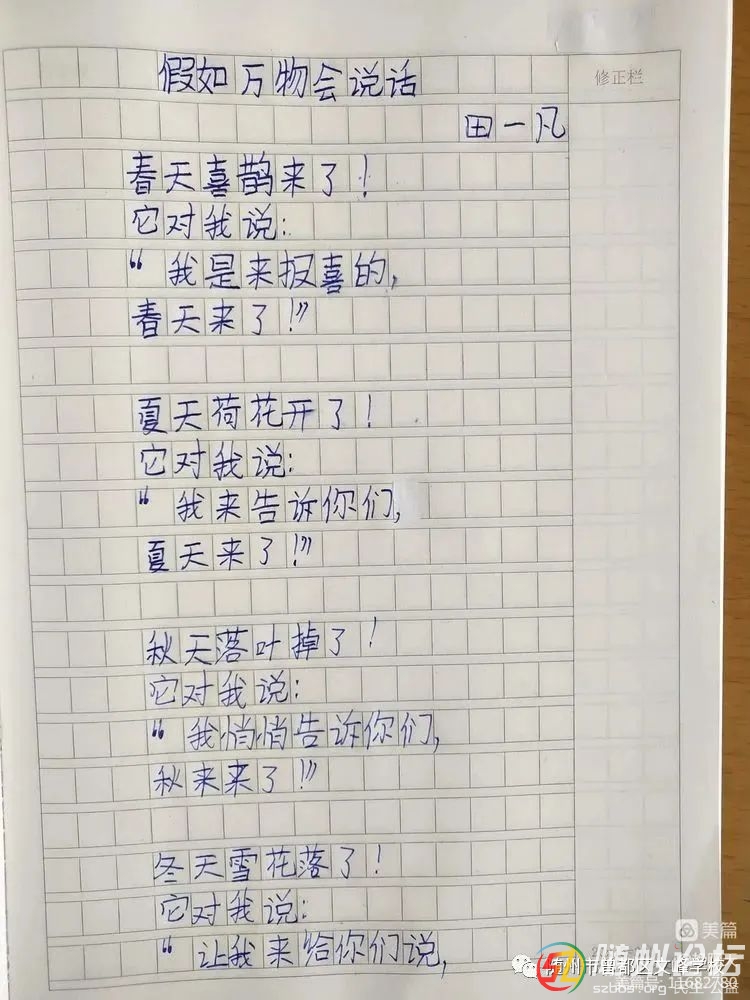 假如万物会说话
修正栏
田一凡
春天喜鹊来了!
它对我说:
“我是来报喜的,
春天来了!”
夏天荷花开了!
它对我说:
“我来告诉你们,
夏天来了!”
秋天落叶掉了!
它对我说:
“我悄悄告诉你们,
秋来来了!”
冬天雪花落了!
它对我说:
“让我来给你们说,
美篇
随州论坛
随州市曾都区文峰学校
美篇号:11682780
szbbs.org